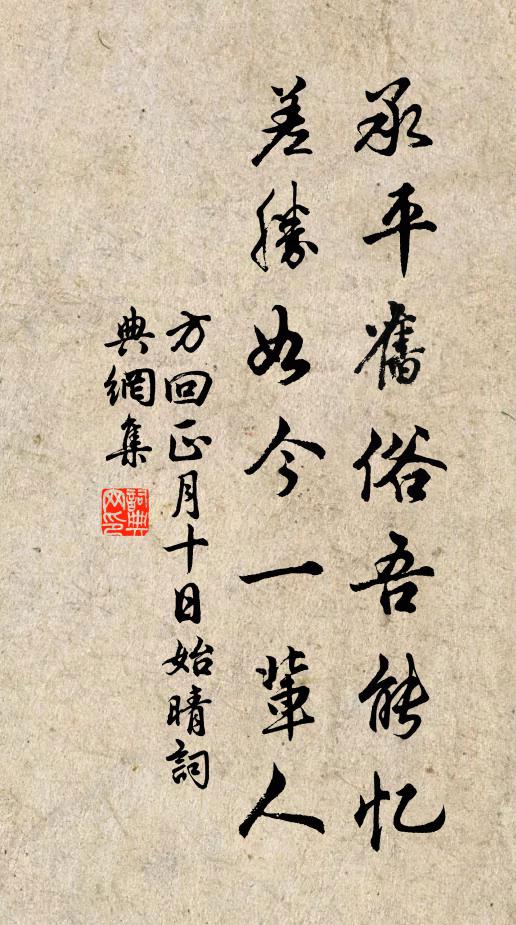 承平舊俗吾能忆
差勝如今一輩人
方回正月十日始晴詞
典網集
詞典网印